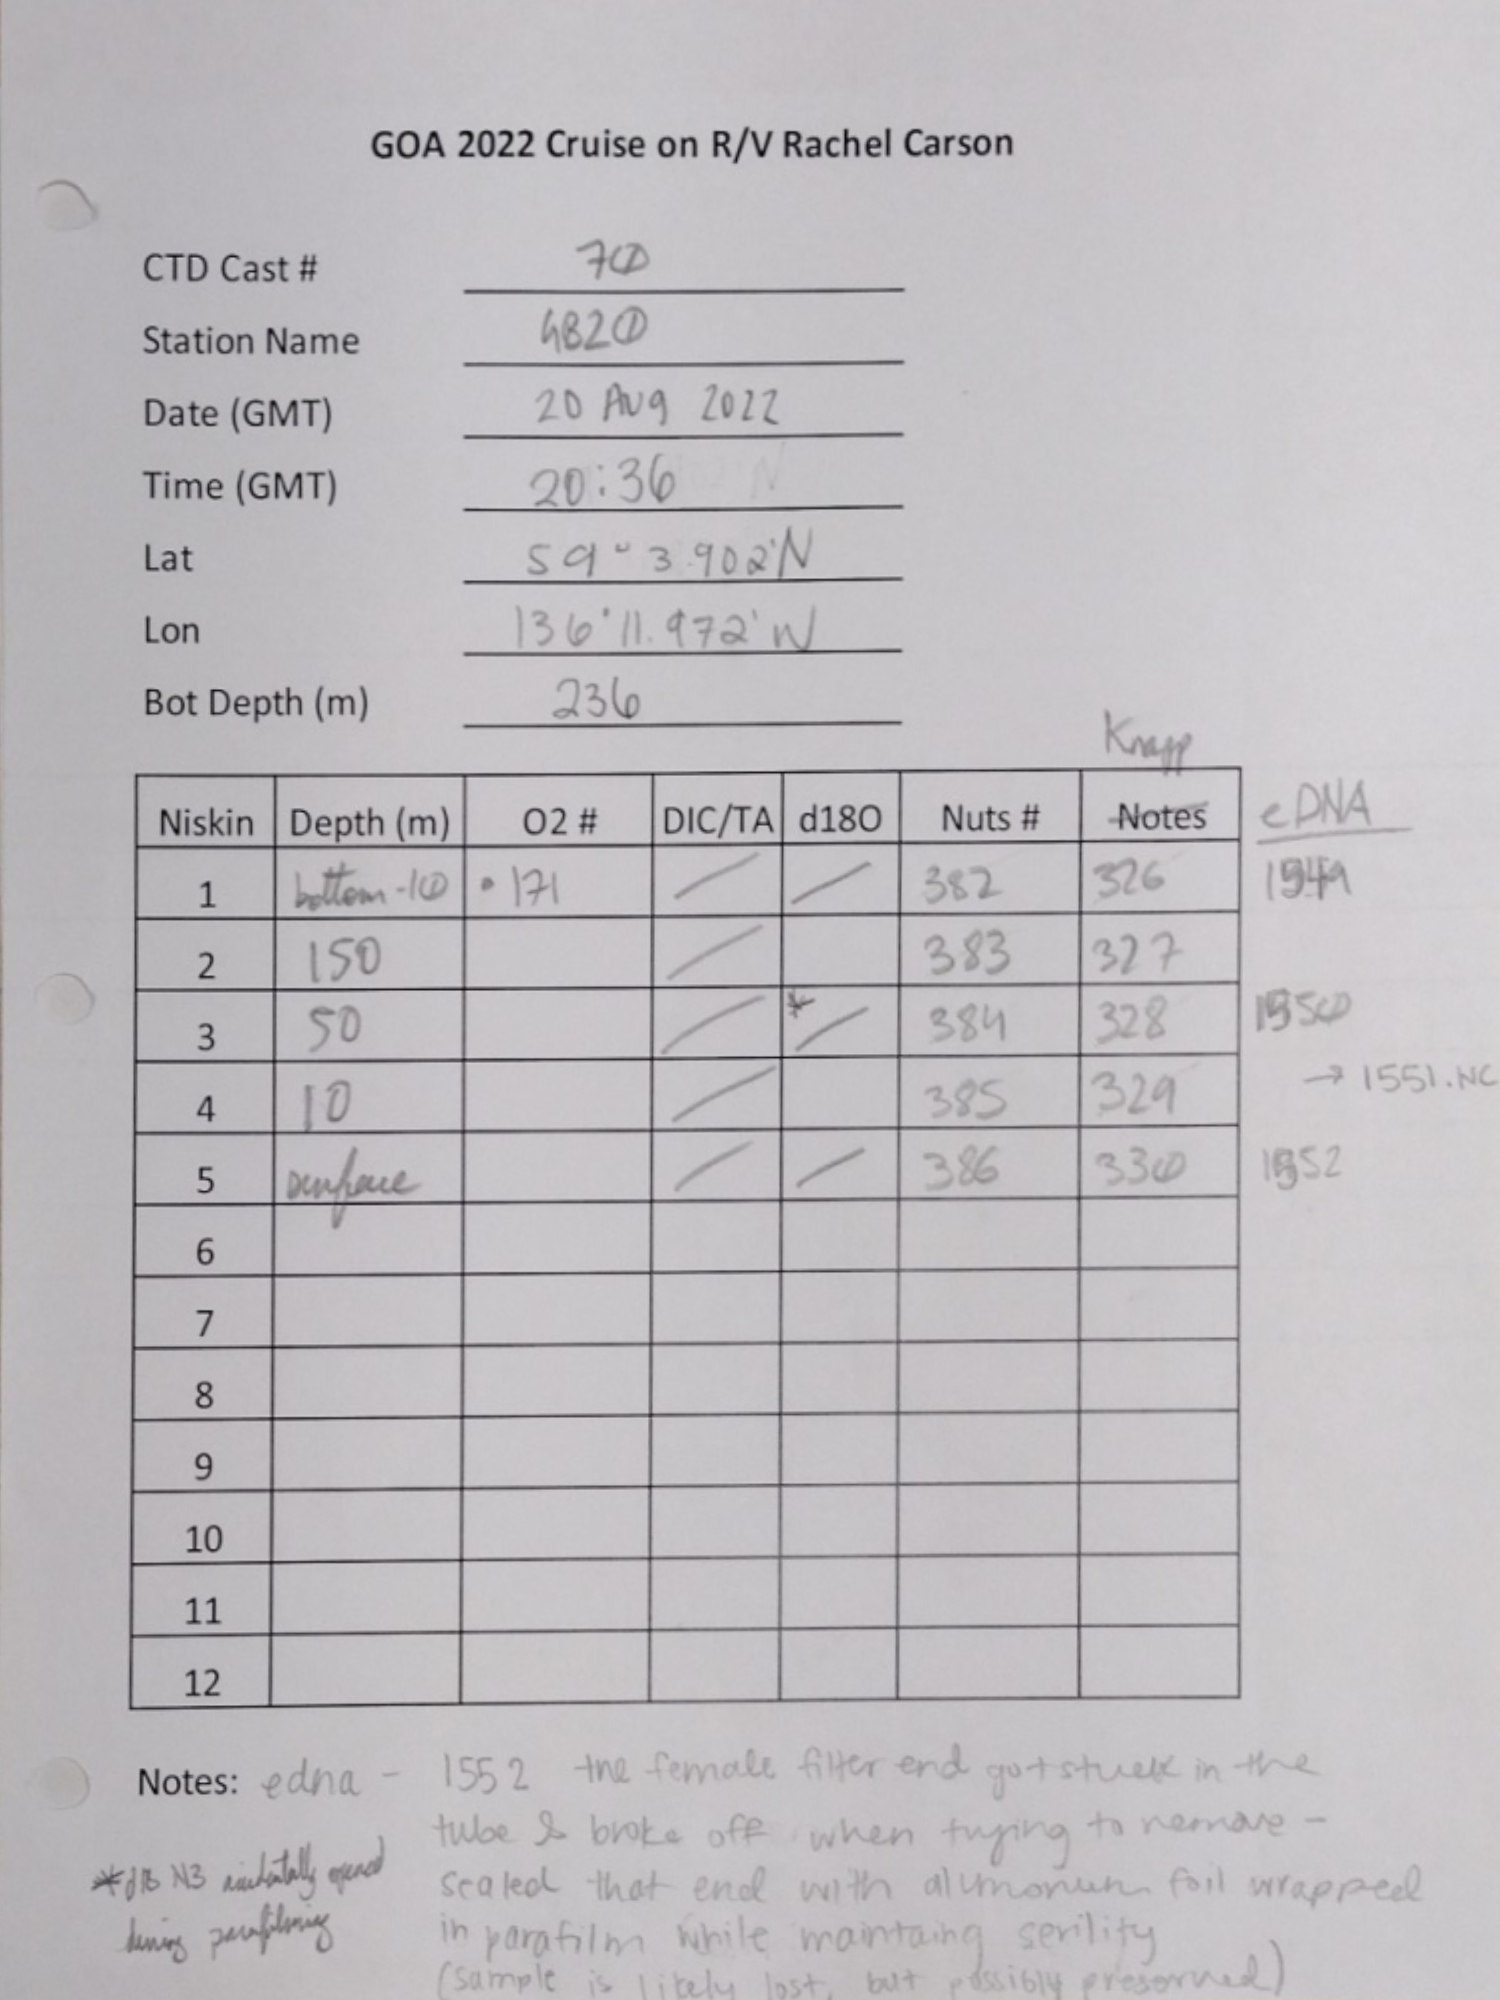 GOA 2022 Cruise on R/V Rachel Carson
CTD Cast # 70
Station Name GB20
Date (GMT) 20 Aug 2022
Time (GMT) 20:36
Lat 59° 3.902'N
Lon 136° 11.972' W
Bot Depth (m) 236
Knapp
Niskin Depth (m) O2 # DIC/TA d18O Nuts # Notes eDNA
1 bottom-10 • 171 / / 382 326 1549
2 150 / 383 327
3 50 / * / 384 328 1550
4 10 / 385 329 → 1551.NC
5 surface / / 386 330 1552
6
7
8
9
10
11
12
Notes: edna - 1552 the female filter end got stuck in the
tube & broke off when trying to remove -
sealed that end with alumonum foil wrapped
in parafilm while maintaing serility
(sample is likely lost, but possibly preserved)
* N3 accidentally opened
during parafilming